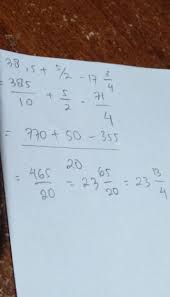 38,5 + 5/2 - 17 3/4
= 385/10 + 5/2 - 71/4
= 770 + 50 - 355
20
= 465/20 = 23 65/20 = 23 13/4